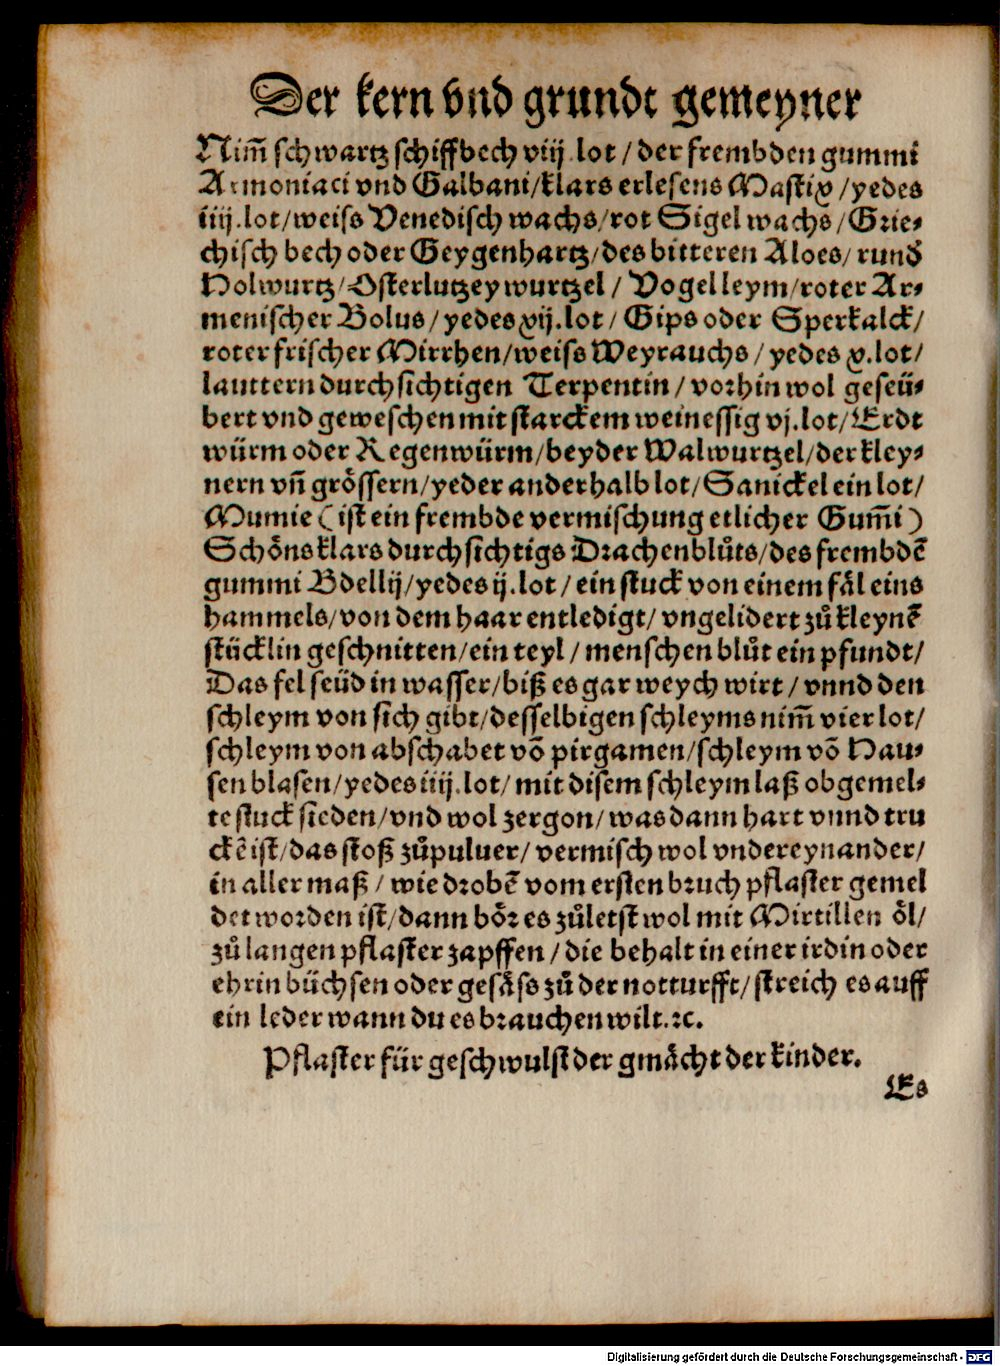 Der kern vnd grundt gemeyner
Nim̃ schwartz schiffbech viij.lot/der frembden gummi
Armoniaci vnd Galbani/klars erlesens Mastix/yedes
iiij.lot/weiss Venedisch wachs/rot Sigel wachs/Grie-
chisch bech oder Geygenhartz/des bitteren Aloes/rund
Holwurtz/Osterlutzey wurtzel/Vogelleym/roter Ar-
menischer Bolus/yedes xij.lot/Gips oder Sperkalck/
roter frischer Mirrhen/weiss Weyrauchs/yedes x.lot/
lauttern durchsichtigen Terpentin/vorhin wol geseü-
bert vnd geweschen mit starckem weinessig vj.lot/Erdt
würm oder Regenwürm/beyder Walwurtzel/der kley-
nern vñ grössern/yeder anderhalb lot/Sanickel ein lot/
Mumie (ist ein frembde vermischung etlicher Gum̃i)
Schöns klars durchsichtigs Drachenblůts/des frembdẽ
gummi Bdellij/yedes ij.lot/ein stuck von einem fäl eins
hammels/von dem haar entledigt/vngelidert zů kleynẽ
stücklin geschnitten/ein teyl/menschen blůt ein pfundt/
Das fel seüd in wasser/biß es gar weych wirt/vnnd den
schleym von sich gibt/desselbigen schleyms nim̃ vier lot/
schleym von abschabet võ pirgamen/schleym võ Hau-
sen blasen/yedes iiij.lot/mit disem schleym laß obgemel-
te stuck sieden/vnd wol zergon/was dann hart vnnd tru
ckẽ ist/das stoß zů puluer/vermisch wol vndereynander/
in aller maß/wie drobẽ vom ersten bruch pflaster gemel
det worden ist/dann bör es zů letst wol mit Mirtillen öl/
zů langen pflaster zapffen/die behalt in einer irdin oder
ehrin büchsen oder gesäss zů der notturfft/streich es auff
ein leder wann du es brauchen wilt.ꝛc.
Pflaster für geschwulst der gmächt der kinder.
Es
Digitalisierung gefördert durch die Deutsche Forschungsgemeinschaft - DFG